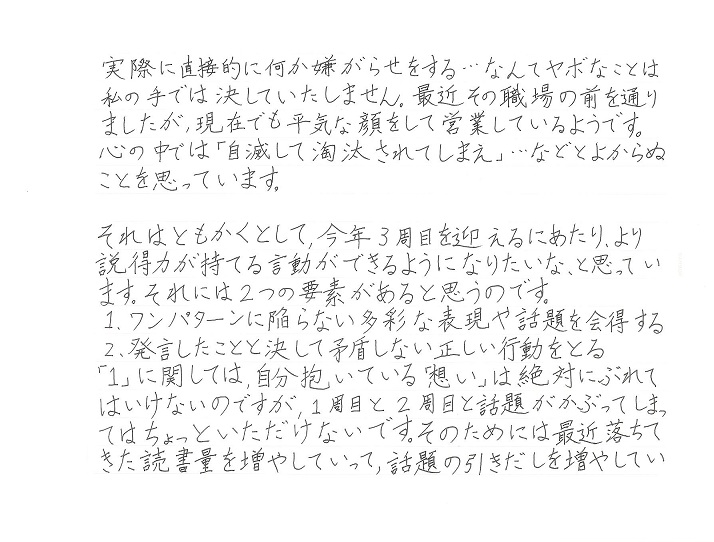 実際に直接的に何か嫌がらせをする…なんてヤボなことは
私の手では決していたしません。最近その職場の前を通り
ましたが,現在でも平気な顔をして営業しているようです。
心の中では「自滅して淘汰されてしまえ」…などとよからぬ
ことを思っています。
それはともかくとして,今年3周目を迎えるにあたり、より
説得力が持てる言動ができるようになりたいな、と思ってい
ます。それには2つの要素があると思うのです。
1、ワンパターンに陥らない多彩な表現や話題を会得する
2、発言したことと決して矛盾しない正しい行動をとる
「1」に関しては,自分抱いている「想い」は絶対にぶれて
はいけないのですが,1周目と2周目と話題がかぶってしまっ
てはちょっといただけないです。そのためには最近落ちて
きた読書量を増やしていって,話題の引きだしを増やしてい